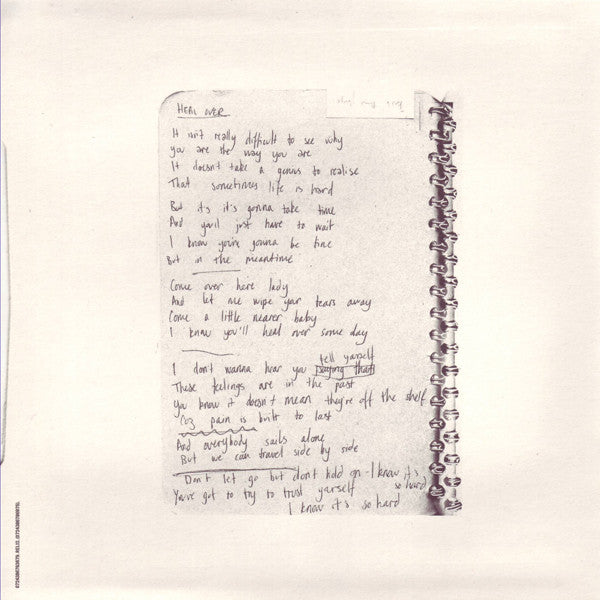 HEAL OVER
It isn't really difficult to see why
you are the way you are
It doesn't take a genius to realise
That sometimes life is hard
But its it's gonna take time
And you'll just have to wait
I know you're gonna be fine
But in the meantime
Come over here lady
And let me wipe your tears away
Come a little nearer baby
I know you'll heal over some day
tell yarself
I don't wanna hear you saying that
These feelings are in the past
You know it doesn't mean they're off the shelf
Cuz pain is built to last
And everybody sails alone
But we can travel side by side
Don't let go but don't hold on - I know it's
so hard
You've got to try to trust yarself
I know it's so hard